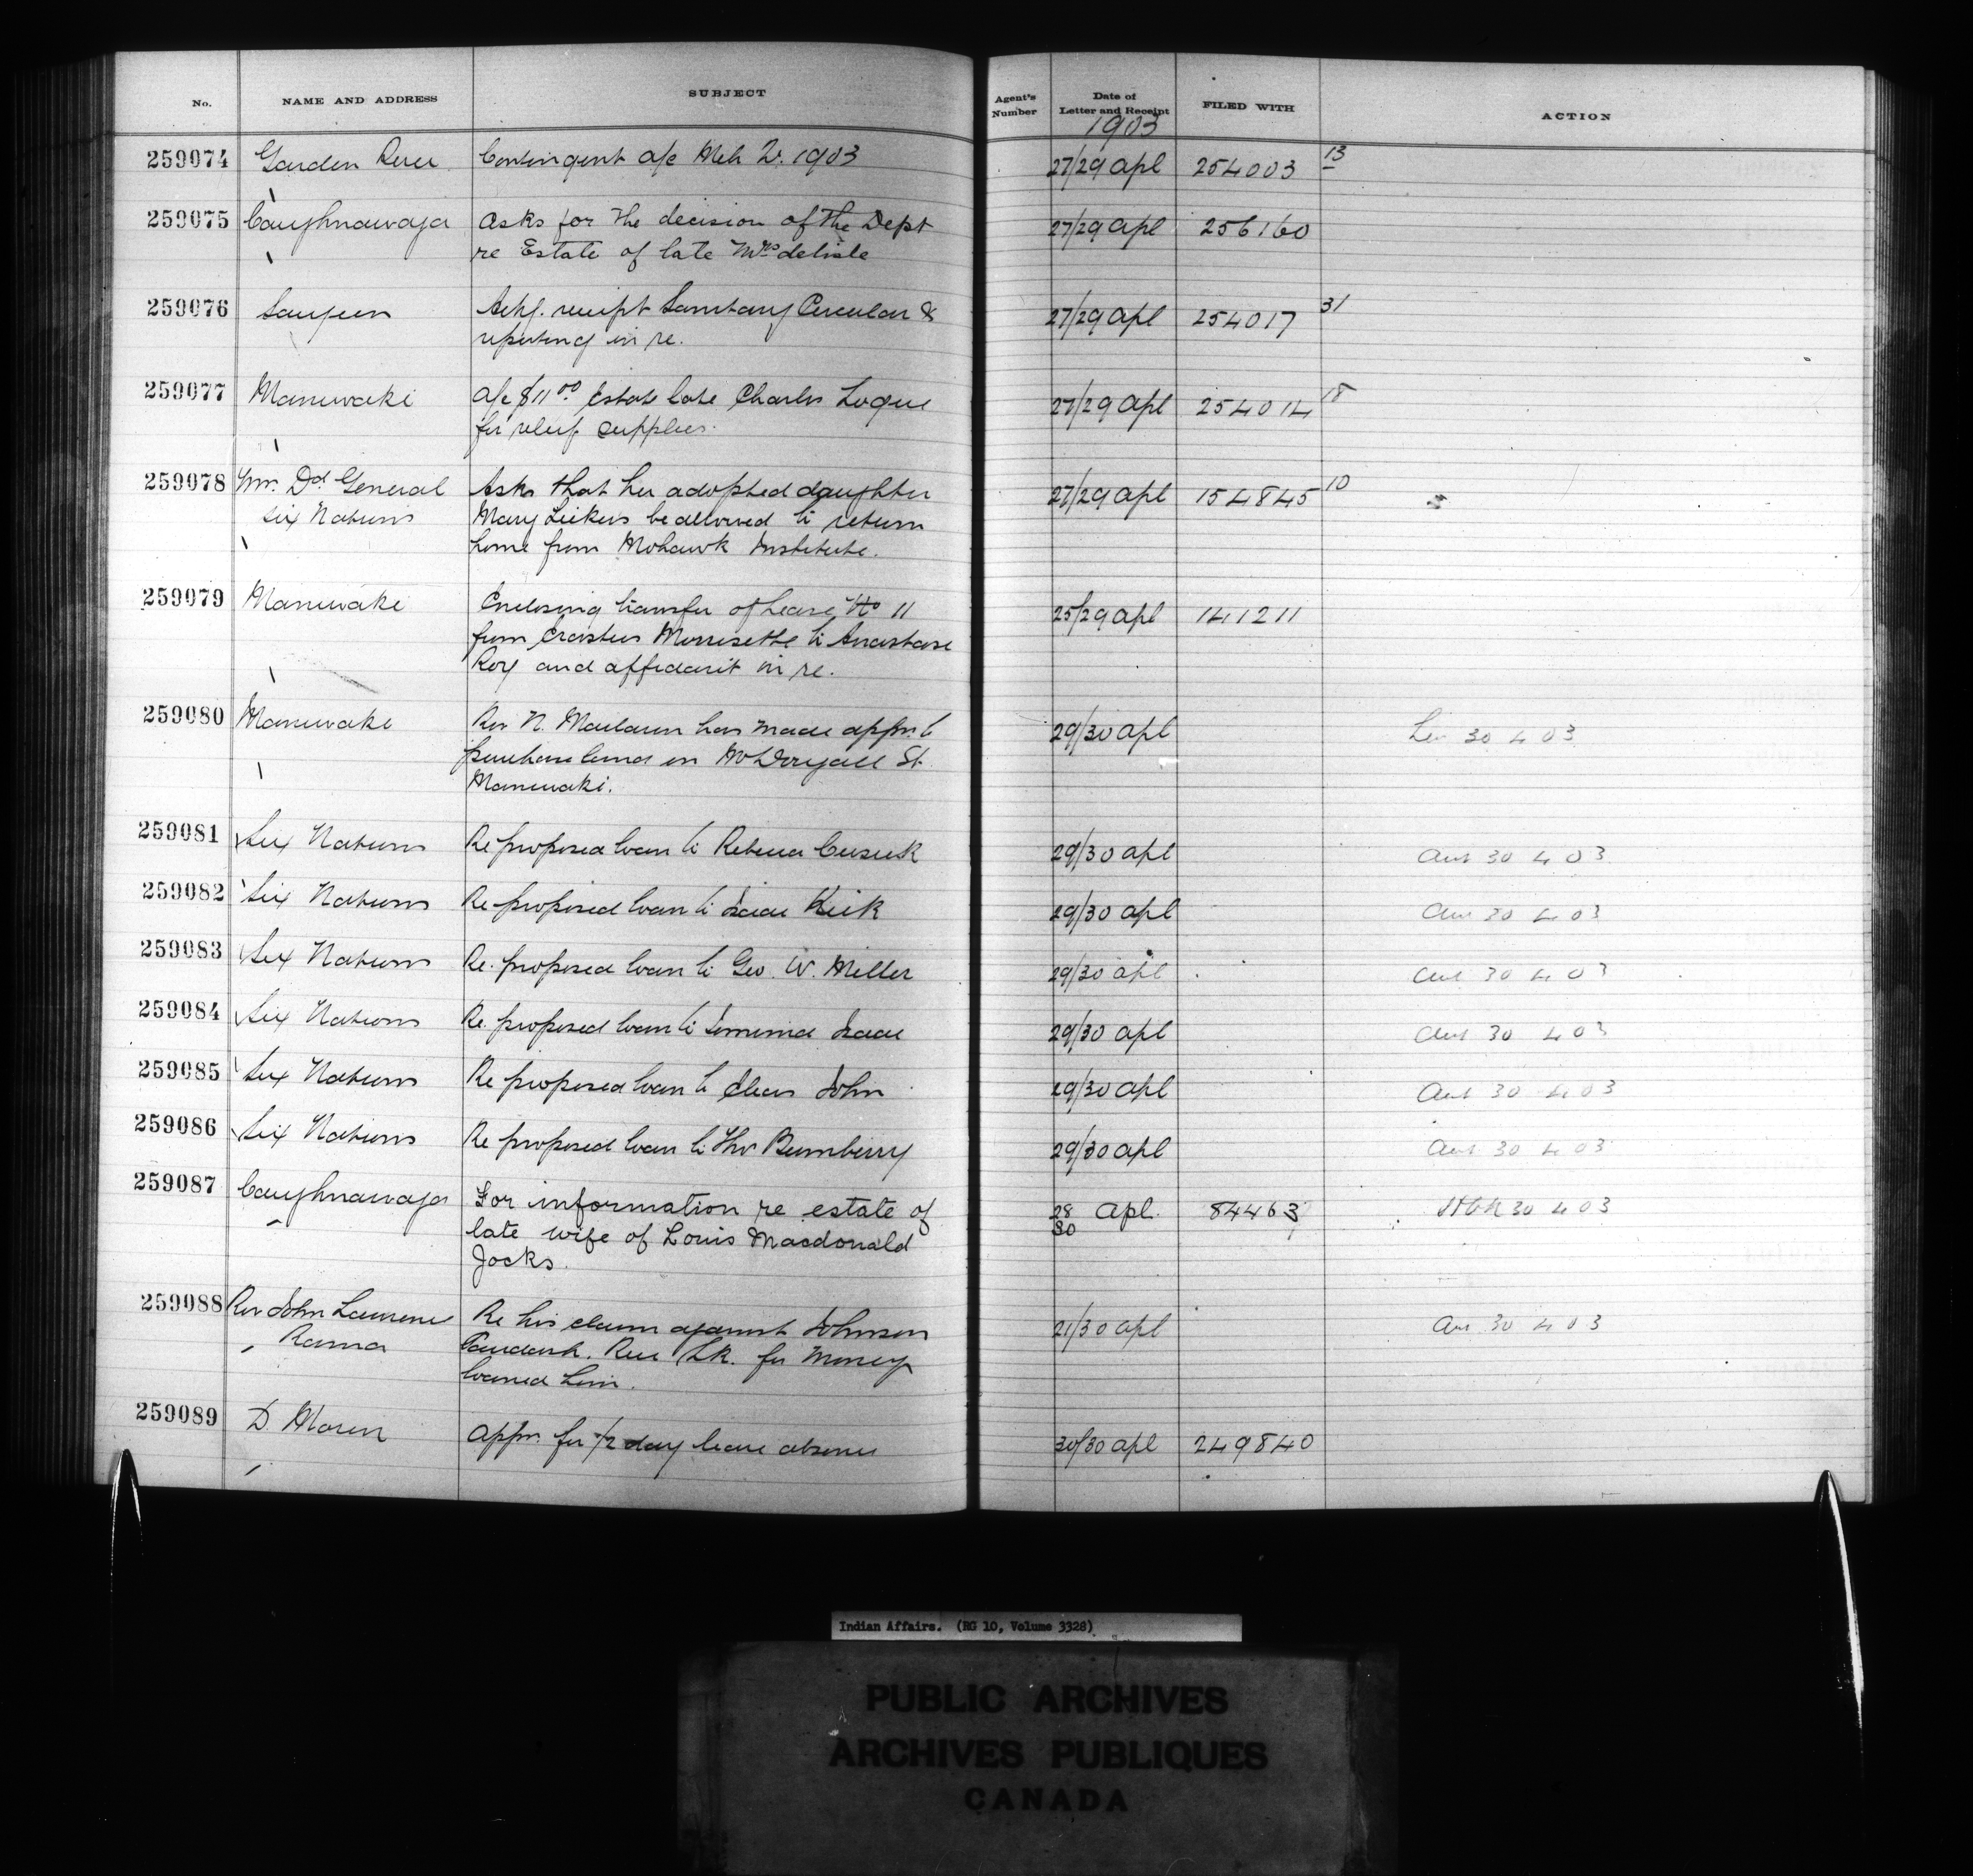 No. NAME AND ADDRESS SUBJECT Agent's Number Date of Letter and Receipt FILED WITH ACTION
1903
259074 Garden River Contingent a/c Mch 1903 27/29 Apl 254003 13
259075 Caughnawaga Asks for the decision of the Dept 27/29 Apl 256160
re Estate of late Mrs delisle
259076 Saugeen Ackg. receipt Sanitary Circular & 27/29 Apl 254017 31
reporting in re.
259077 Maniwaki A/c $11 00 Estate late Charles Logue 27/29 Apl 254014 18
for relief supplies.
259078 Mrs. Dd. General Asks that her adopted daughter 27/29 Apl 154845 10
Six Nations Mary Lickers be allowed to return
home from Mohawk Institute.
259079 Maniwaki Enclosing transfer of Lease No 11 25/29 Apl 141211
from Morrisette to Anastase
Roy and affidavit in re.
259080 Maniwaki Rev N. Maclaren has made appn. to 29/30 Apl 30 4 03
purchase land on McDougall St.
Maniwaki.
259081 Six Nations Re proposed loan to Rebecca Cusick 29/30 Apl Ans 30 4 03
259082 Six Nations Re proposed loan to Isaac Kick 29/30 Apl Ans 30 4 03
259083 Six Nations Re. proposed loan to Geo. W. Miller 29/30 Apl Ans 30 4 03
259084 Six Nations Re. proposed loan to Jemima Isaac 29/30 Apl Ans 30 4 03
259085 Six Nations Re proposed loan to John 29/30 Apl Ans 30 4 03
259086 Six Nations Re proposed loan to Thos Bumberry 29/30 Apl Ans 30 4 03
259087 Caughnawaga For information re estate of 28/30 Apl. 84463 30 4 03
late wife of Louis Macdonald
Jocks.
259088 Rev John Lawrence Re his claim against Johnson 21/30 Apl Ans 30 4 03
Rama Paudash. Rice Lk. for money
loaned him.
259089 D. Morin Appn. for 1/2 day leave absence 30/30 Apl 249840
Indian Affairs. (RG 10, Volume 3328)
PUBLIC ARCHIVES
ARCHIVES PUBLIQUES
CANADA